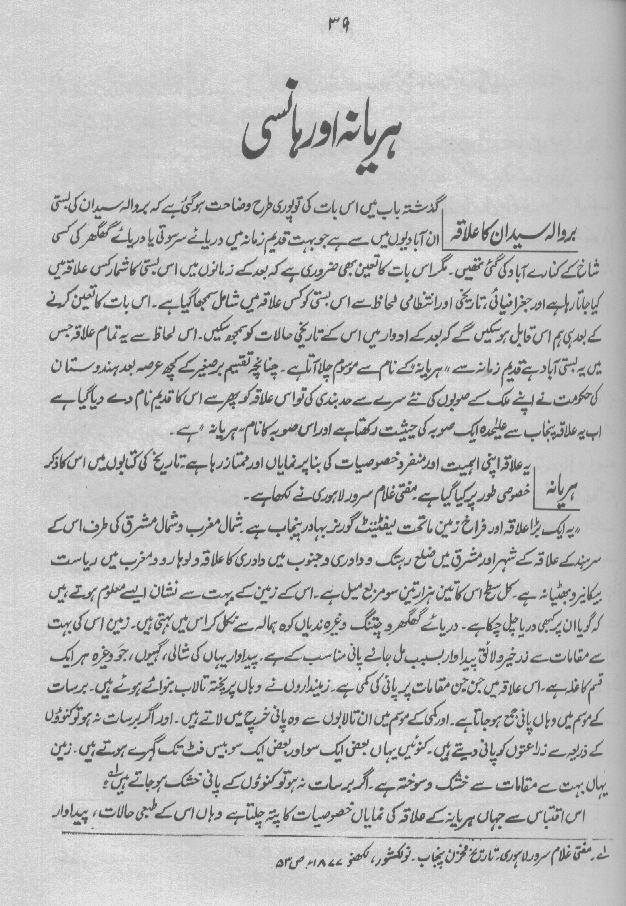 ۳۹
ہریانہ اور ہانسی
گذشتہ باب میں اس بات کی تو پوری طرح وضاحت ہو گئی ہے کہ بروالہ سیدان کی بستی
بروالہ سیدان کا علاقہ
ان آبادیوں میں سے ہے جو بہت قدیم زمانہ میں دریائے سرسوتی یا دریائے گھگھر کی کسی
شاخ کے کنارے آباد کی گئی تھیں۔ مگر اس بات کا تعین بھی ضروری ہے کہ بعد کے زمانوں میں اس بستی کا شمار کس علاقہ میں
کیا جاتا رہا ہے اور جغرافیائی، تاریخی اور انتظامی لحاظ سے اس بستی کو کس علاقہ میں شامل سمجھا گیا ہے۔ اس بات کا تعین کرنے
کے بعد ہی ہم اس قابل ہو سکیں گے کہ بعد کے ادوار میں اس کے تاریخی حالات کو سمجھ سکیں۔ اس لحاظ سے یہ تمام علاقہ جس
میں یہ بستی آباد ہے قدیم زمانہ سے "ہریانہ" کے نام سے موسوم چلا آتا ہے۔ چنانچہ تقسیم برصغیر کے کچھ عرصہ بعد ہندوستان
کی حکومت نے اپنے ملک کے صوبوں کی نئے سرے سے حد بندی کی تو اس علاقہ کو پھر سے اس کا قدیم نام دے دیا گیا ہے
اب یہ علاقہ پنجاب سے علیحدہ ایک صوبہ کی حیثیت رکھتا ہے اور اس صوبہ کا نام "ہریانہ" ہے۔
یہ علاقہ اپنی اہمیت اور منفرد خصوصیات کی بنا پر نمایاں اور ممتاز رہا ہے۔ تاریخ کی کتابوں میں اس کا ذکر
ہریانہ
خصوصی طور پر کیا گیا ہے مفتی غلام سرور لاہوری نے لکھا ہے۔
"یہ ایک بڑا علاقہ اور فراخ زمین ماتحت لیفٹیننٹ گورنر بہادر پنجاب ہے۔ شمال مغرب و شمال مشرق کی طرف اس کے
سرہند کے علاقہ کے شہر اور مشرق میں ضلع رہتک و دادری و جنوب میں دادری کا علاقہ و لوہارو و مغرب میں ریاست
بیکانیر و بھٹیانہ ہے۔ کل سطح اس کا تین ہزار تین سو مربع میل ہے۔ اس کے زمین کے بہت سے نشان ایسے معلوم ہوتے ہیں
کہ گویا ان پر کبھی دریا چل چکا ہے۔ دریائے گھگھر و چتنگ وغیرہ ندیاں کوہ ہمالہ سے نکل کر اس میں بہتی ہیں۔ زمین اس کی بہت
سے مقامات سے زرخیز و لائق پیداوار بسبب مل جانے پانی مناسب کے ہے۔ پیداوار یہاں کی شالی، گیہوں، جو وغیرہ ہر ایک
قسم کا غلہ ہے۔ اس علاقہ میں جن جن مقامات پر پانی کی کمی ہے۔ زمینداروں نے وہاں پر پختہ تالاب بنوائے ہوئے ہیں۔ برسات
کے موسم میں وہاں پانی جمع ہو جاتا ہے۔ اور کمی کے موسم میں ان تالابوں سے وہ پانی خرچ میں لاتے ہیں۔ اور اگر برسات نہ ہو تو کنوؤں
کے ذریعہ سے زراعتوں کو پانی دیتے ہیں۔ کنوئیں یہاں بعض ایک سو اور بعض ایک سو بیس فٹ تک گہرے ہوتے ہیں۔ زمین
یہاں بہت سے مقامات سے خشک و سوختہ ہے۔ اگر برسات نہ ہو تو کنوؤں کے پانی خشک ہو جاتے ہیں" لے
اس اقتباس سے جہاں ہریانہ کے علاقہ کی نمایاں خصوصیات کا پتہ چلتا ہے وہاں اس کے طبعی حالات، پیداوار
لے۔ مفتی غلام سرور لاہوری۔ تاریخ مخزن پنجاب۔ نولکشور، لکھنو ۱۸۷۷ء ص ۵۳